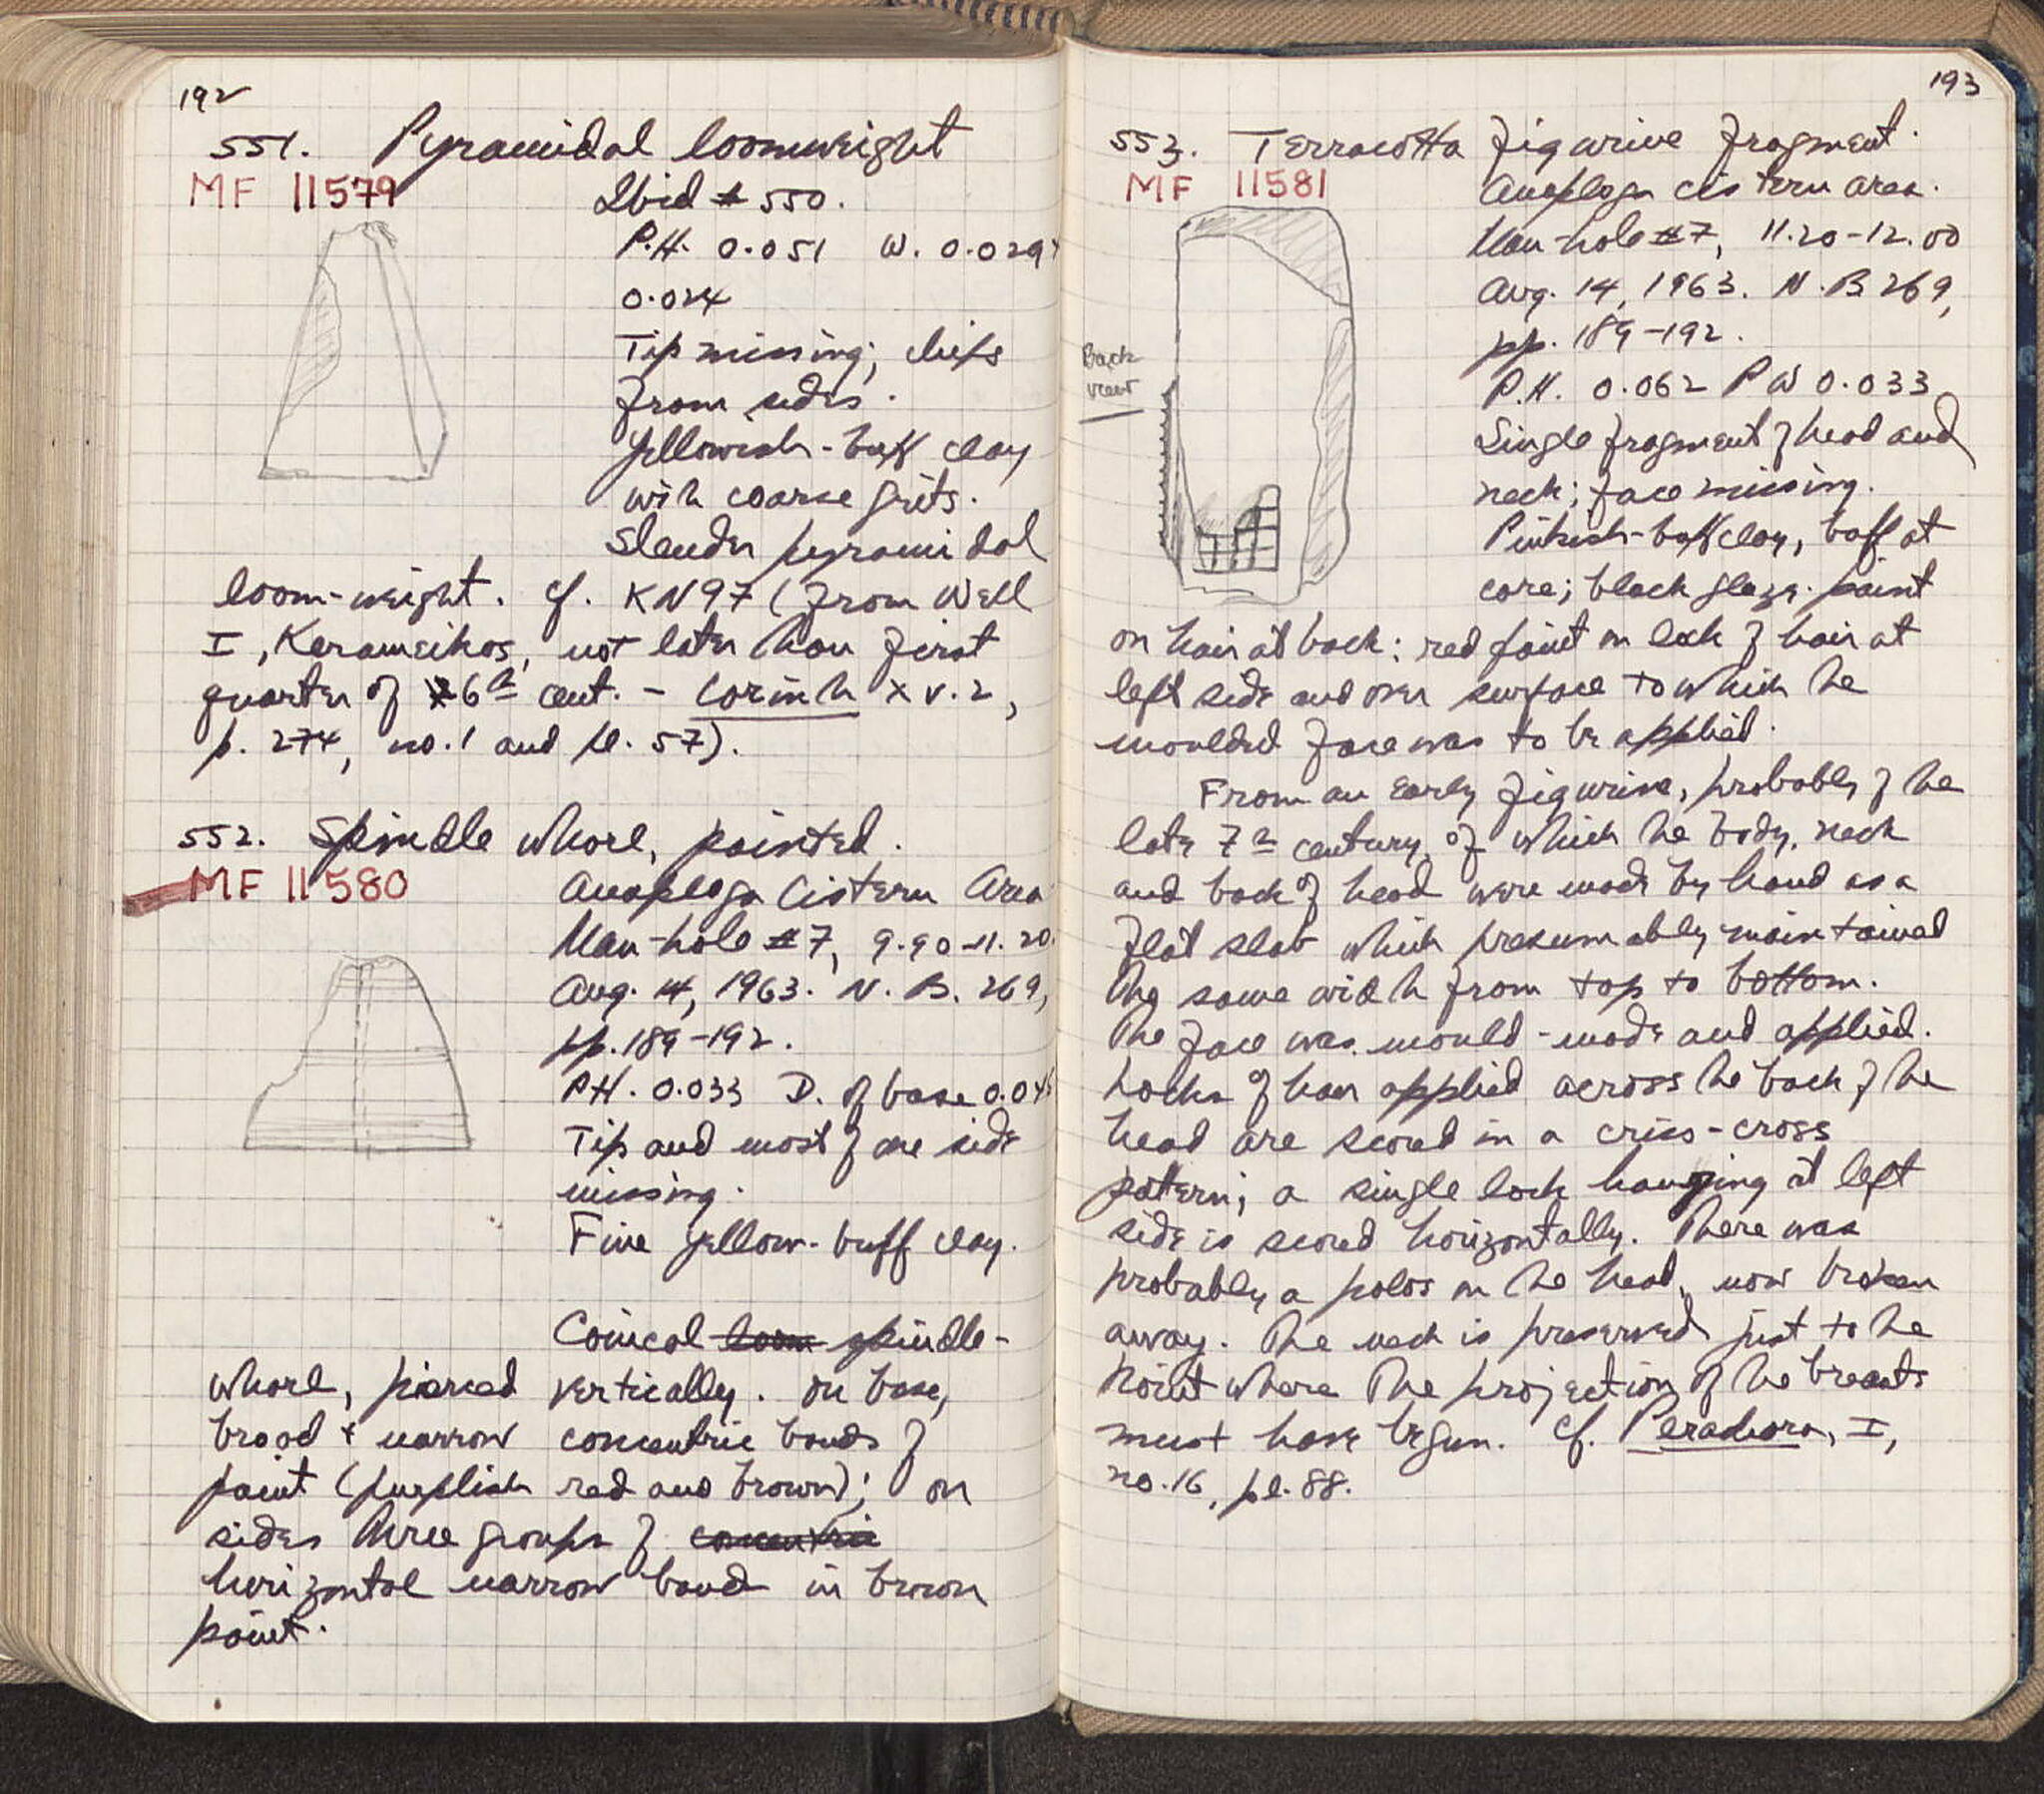 192
551. Pyramidal loomweight
MF 11579
Ibid # 550.
P.H. 0.051 W. 0.029
0.024
Tip missing; chips
from sides.
Yellowish-buff clay
with coarse grits.
Slender pyramidal
loom-weight. Cf. KN97 (from Well
I, Kerameikos, not later than first
quarter of 6th cent. – Corinth XV.2,
p. 274, no. 1 and pl. 57).
552. Spindle whorl, painted.
MF 11580
Anaploga Cistern Area
Man-hole #7, 9.90-11.20.
Aug. 14, 1963. N. B. 269,
pp. 189-192.
P.H. 0.033 D. of base 0.04
Tip and most of one side
missing.
Fine yellow-buff clay.
Conical loom spindle-
whorl, pierced vertically. On base,
broad + narrow concentric bands of
paint (purplish red and brown); on
sides three groups of concentric
horizontal narrow bands in brown
paint.
193
553. Terracotta figurine fragment.
MF 11581
Anaploga cistern area.
Man-hole #7, 11.20-12.00
Aug. 14, 1963. N.B 269,
pp. 189-192.
Back
view
P.H. 0.062 P W 0.033
Single fragment of head and
neck; face missing.
Pinkish-buff clay, buff at
core; black glaze. paint
on hair at back; red paint on lock of hair at
left side and over surface to which the
moulded face was to be applied.
From an early figurine, probably of the
late 7th century, of which the body, neck
and back of head were made by hand as a
flat slab which presumably maintained
the same width from top to bottom.
The face was mould-made and applied.
Locks of hair applied across the back of the
head are scored in a criss-cross
pattern; a single lock hanging at left
side is scored horizontally. There was
probably a polos on the head, now broken
away. The neck is preserved just to the
point where the projection of the breasts
must have begun. Cf. Perachora, I,
no. 16, pl. 88.